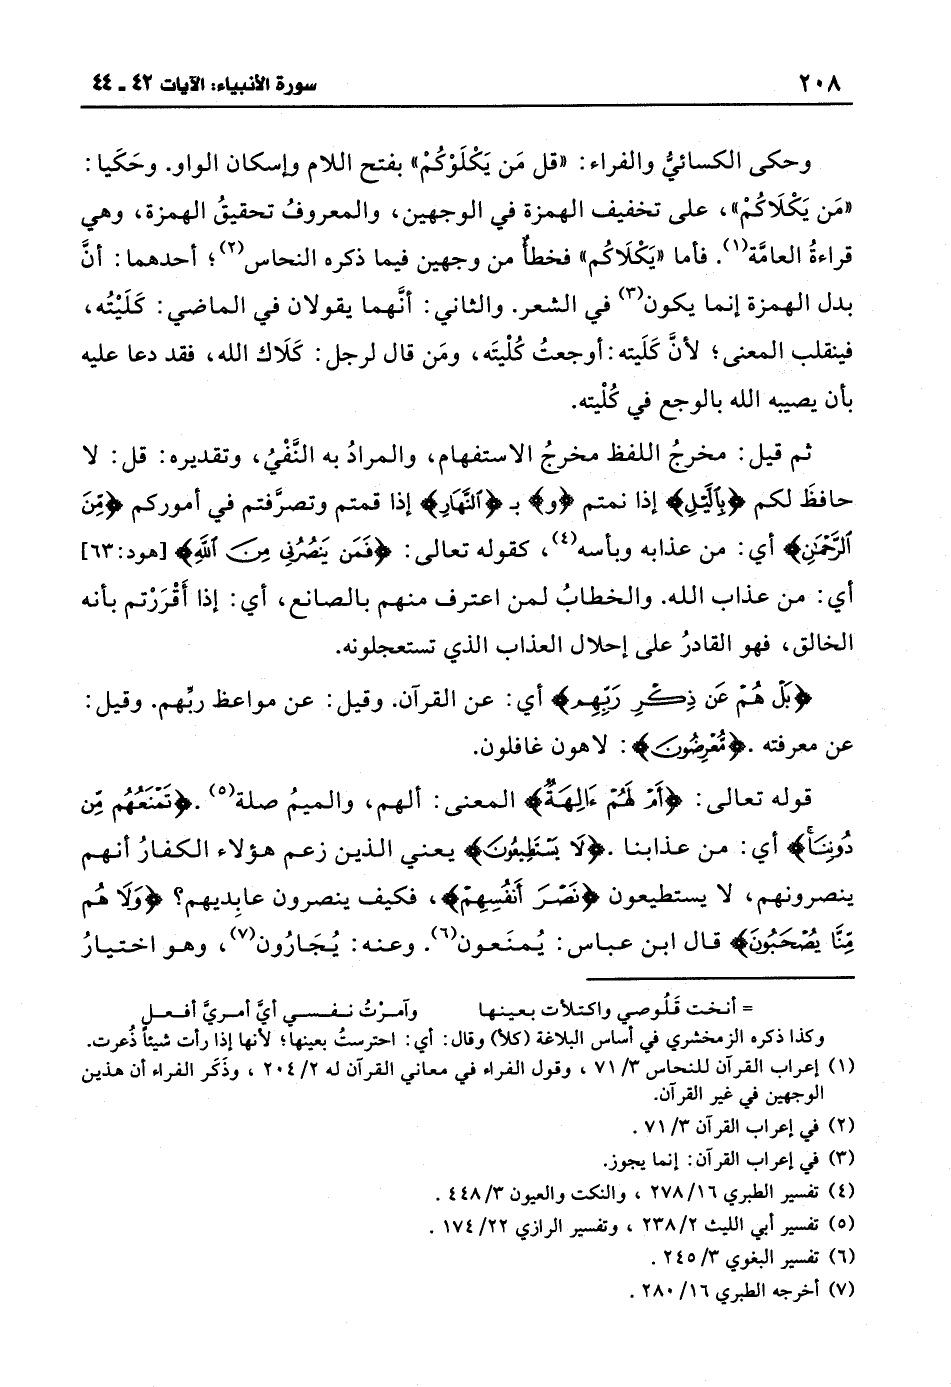 ٢٠٨ سورة الأنبياء: الآيات ٤٢ ـ ٤٤
وحكى الكسائيُّ والفراء: «قل مَن يَكْلَوْكُمْ» بفتح اللام وإسكان الواو. وحَكَيا:
«مَن يَكْلَاكُمْ»، على تخفيف الهمزة في الوجهين، والمعروفُ تحقيقُ الهمزة، وهي
قراءةُ العامَّة(١). فأما «يَكْلَاكُم» فخطأٌ من وجهين فيما ذكره النحاس(٢)؛ أحدهما: أنَّ
بدل الهمزة إنما يكون(٣) في الشعر. والثاني: أنَّهما يقولان في الماضي: كَلَيْتُه،
فينقلب المعنى؛ لأنَّ كَلَيته: أوجعتُ كُلْيتَه، ومَن قال لرجل: كَلَاك الله، فقد دعا عليه
بأن يصيبه الله بالوجع في كُلْيته.
ثم قيل: مخرجُ اللفظ مخرجُ الاستفهام، والمرادُ به النَّفْيُ، وتقديره: قل: لا
حافظَ لكم ﴿بِالَّيْلِ﴾ إذا نمتم ﴿و﴾ بـ ﴿النَّهَارِ﴾ إذا قمتم وتصرَّفتم في أموركم ﴿مِنَ
الرَّحْمَٰنِ﴾ أي: من عذابه وبأسه(٤)، كقوله تعالى: ﴿فَمَن يَنصُرُنِي مِنَ اللَّهِ﴾ [هود:٦٣]
أي: من عذاب الله. والخطابُ لمن اعترف منهم بالصانع، أي: إذا أَقْرَرْتم بأنه
الخالق، فهو القادرُ على إحلال العذاب الذي تستعجلونه.
﴿بَلْ هُمْ عَن ذِكْرِ رَبِّهِم﴾ أي: عن القرآن. وقيل: عن مواعظ ربِّهم. وقيل:
عن معرفته .﴿مُّعْرِضُونَ﴾: لاهون غافلون.
قوله تعالى: ﴿أَمْ لَهُمْ ءَالِهَةٌ﴾ المعنى: ألهم، والميمُ صلة(٥) .﴿تَمْنَعُهُم مِّن
دُونِنَا﴾ أي: من عذابنا .﴿لَا يَسْتَطِيعُونَ﴾ يعني الذين زعم هؤلاء الكفارُ أنهم
ينصرونهم، لا يستطيعون ﴿نَصْرَ أَنفُسِهِمْ﴾، فكيف ينصرون عابِديهم؟ ﴿وَلَا هُم
مِّنَّا يُصْحَبُونَ﴾ قال ابن عباس: يُمنَعون(٦). وعنه: يُجَارُون(٧)، وهو اختيارُ
= أنخت قَلُوصي واكتلأت بعينها وآمرْتُ نفسي أيَّ أمريَّ أفعل
وكذا ذكره الزمخشري في أساس البلاغة (كلأ) وقال: أي: احترستُ بعينها؛ لأنها إذا رأت شيئاً ذُعرت.
(١) إعراب القرآن للنحاس ٧١/٣ ، وقول الفراء في معاني القرآن له ٢٠٤/٢ ، وذَكَر الفراء أن هذين
الوجهين في غير القرآن.
(٢) في إعراب القرآن ٧١/٣ .
(٣) في إعراب القرآن: إنما يجوز.
(٤) تفسير الطبري ٢٧٨/١٦ ، والنكت والعيون ٤٤٨/٣ .
(٥) تفسير أبي الليث ٢٣٨/٢ ، وتفسير الرازي ١٧٤/٢٢ .
(٦) تفسير البغوي ٢٤٥/٣ .
(٧) أخرجه الطبري ٢٨٠/١٦ .